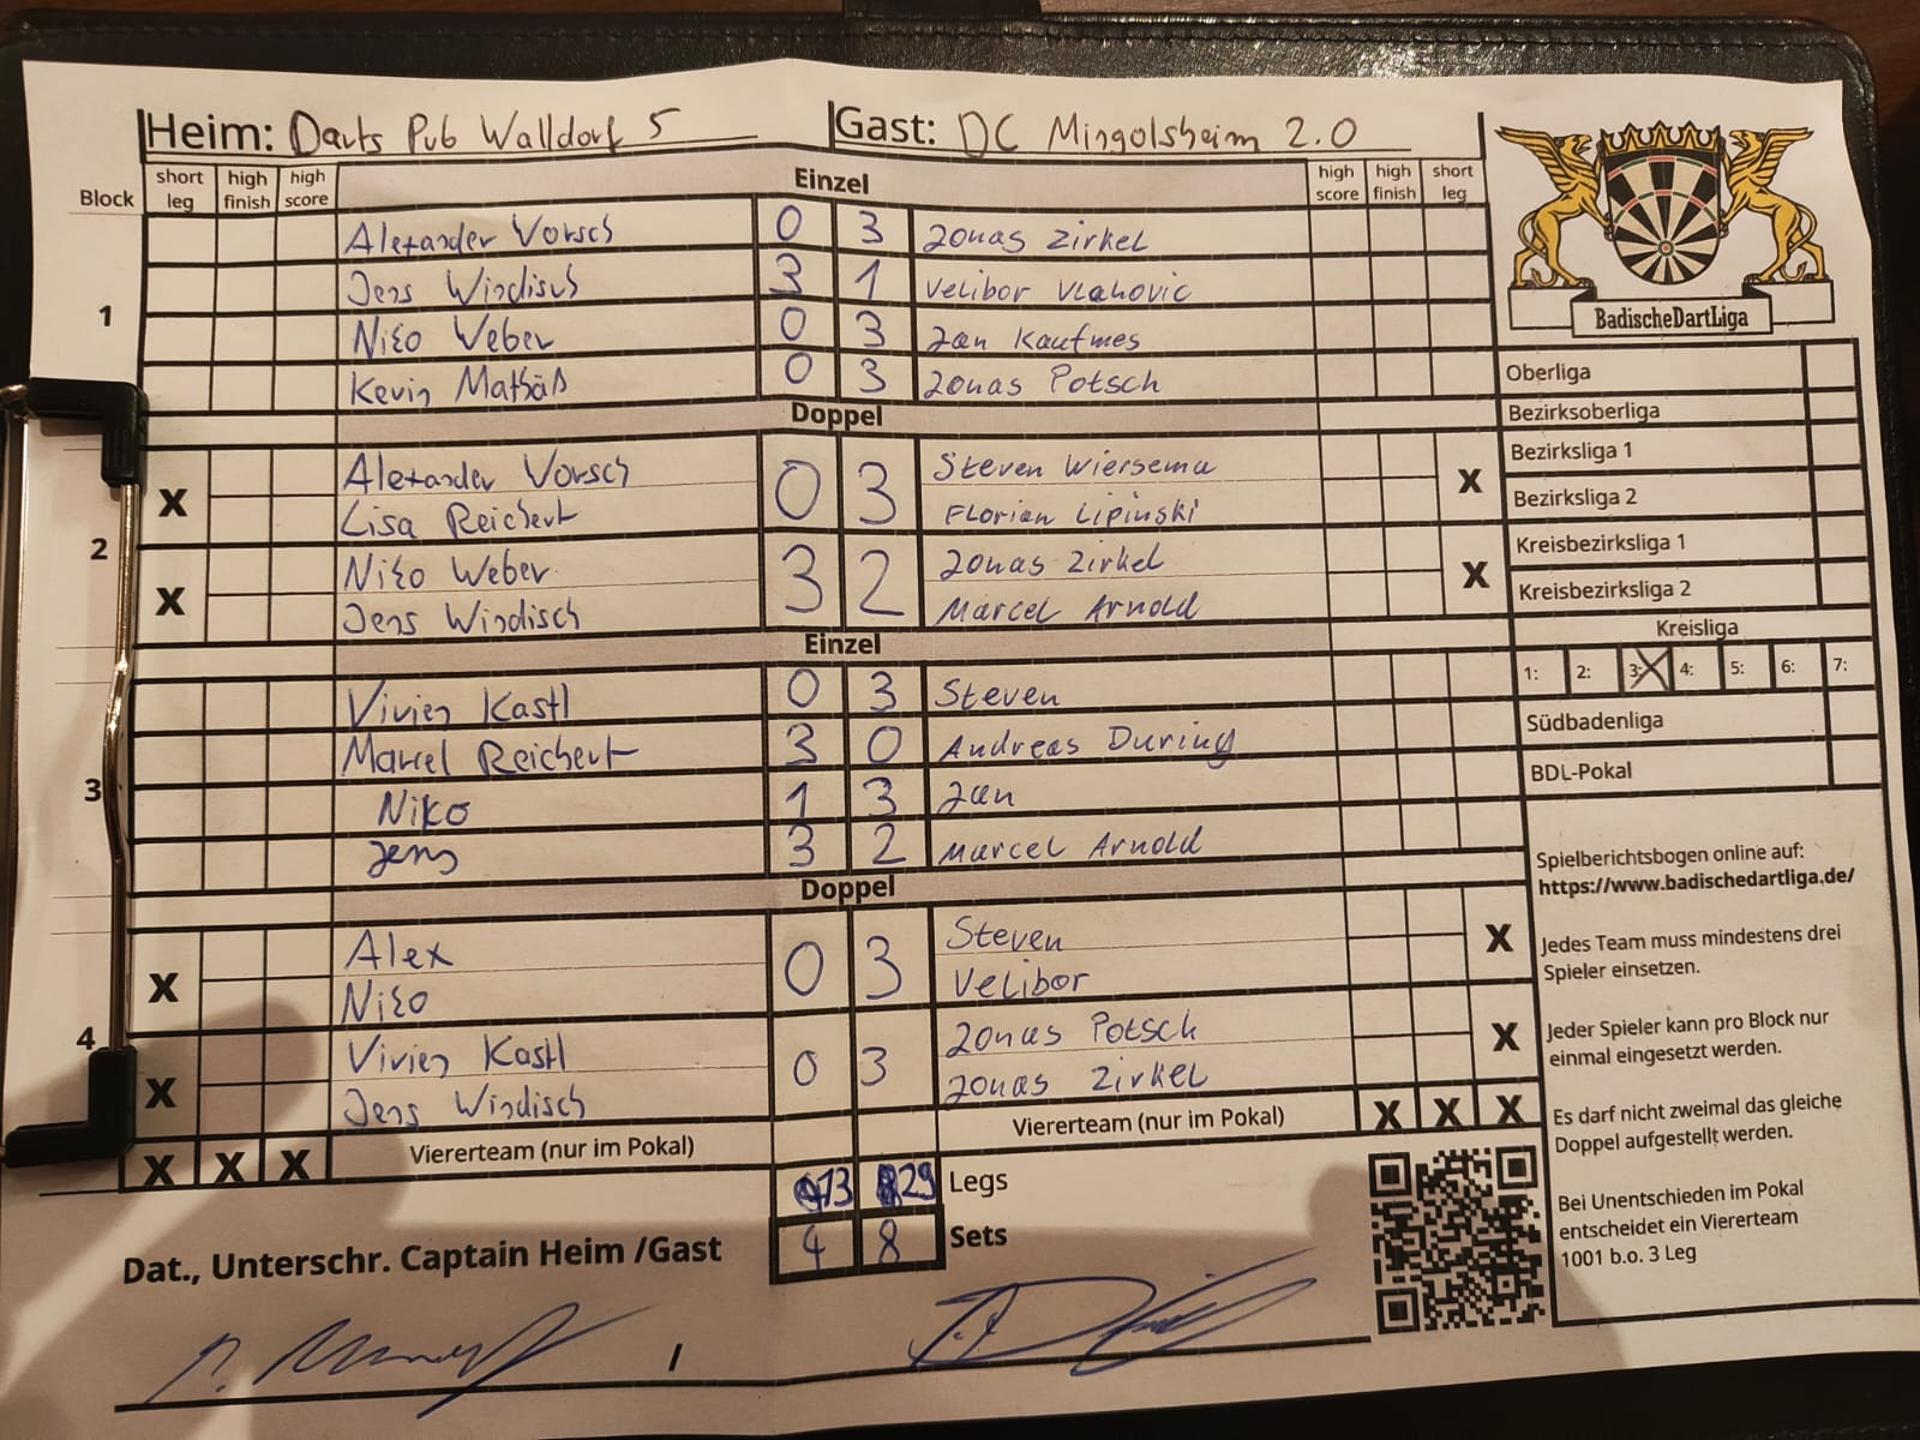 Heim: Darts Pub Walldorf 5 Gast: DC Mingolsheim 2.0
Block short leg high finish high score Einzel high score high finish short leg
1
Alexander Vorsch 0 3 Jonas Zirkel
Jens Windisch 3 1 Velibor Vlahovic
Niko Weber 0 3 Jan Kaufmes
Kevin 0 3 Jonas Potsch
Doppel
2
X Alexander Vorsch 0 3 Steven Wiersema X
Lisa Reichert Florian Lipinski
X Niko Weber 3 2 Jonas Zirkel X
Jens Windisch Marcel Arnold
Einzel
3
Vivien Kastl 0 3 Steven
Marcel Reichert 3 0 Andreas During
Niko 1 3 Jan
Jens 3 2 Marcel Arnold
Doppel
4
X Alex 0 3 Steven X
Niko Velibor
X Vivien Kastl 0 3 Jonas Potsch X
Jens Windisch Jonas Zirkel
X X X Viererteam (nur im Pokal) Viererteam (nur im Pokal) X X X
13 29 Legs
4 8 Sets
Dat., Unterschr. Captain Heim /Gast
/
BadischeDartLiga
Oberliga
Bezirksoberliga
Bezirksliga 1
Bezirksliga 2
Kreisbezirksliga 1
Kreisbezirksliga 2
Kreisliga
1: 2: 3: X 4: 5: 6: 7:
Südbadenliga
BDL-Pokal
Spielberichtsbogen online auf:
https://www.badischedartliga.de/
Jedes Team muss mindestens drei
Spieler einsetzen.
Jeder Spieler kann pro Block nur
einmal eingesetzt werden.
Es darf nicht zweimal das gleiche
Doppel aufgestellt werden.
Bei Unentschieden im Pokal
entscheidet ein Viererteam
1001 b.o. 3 Leg